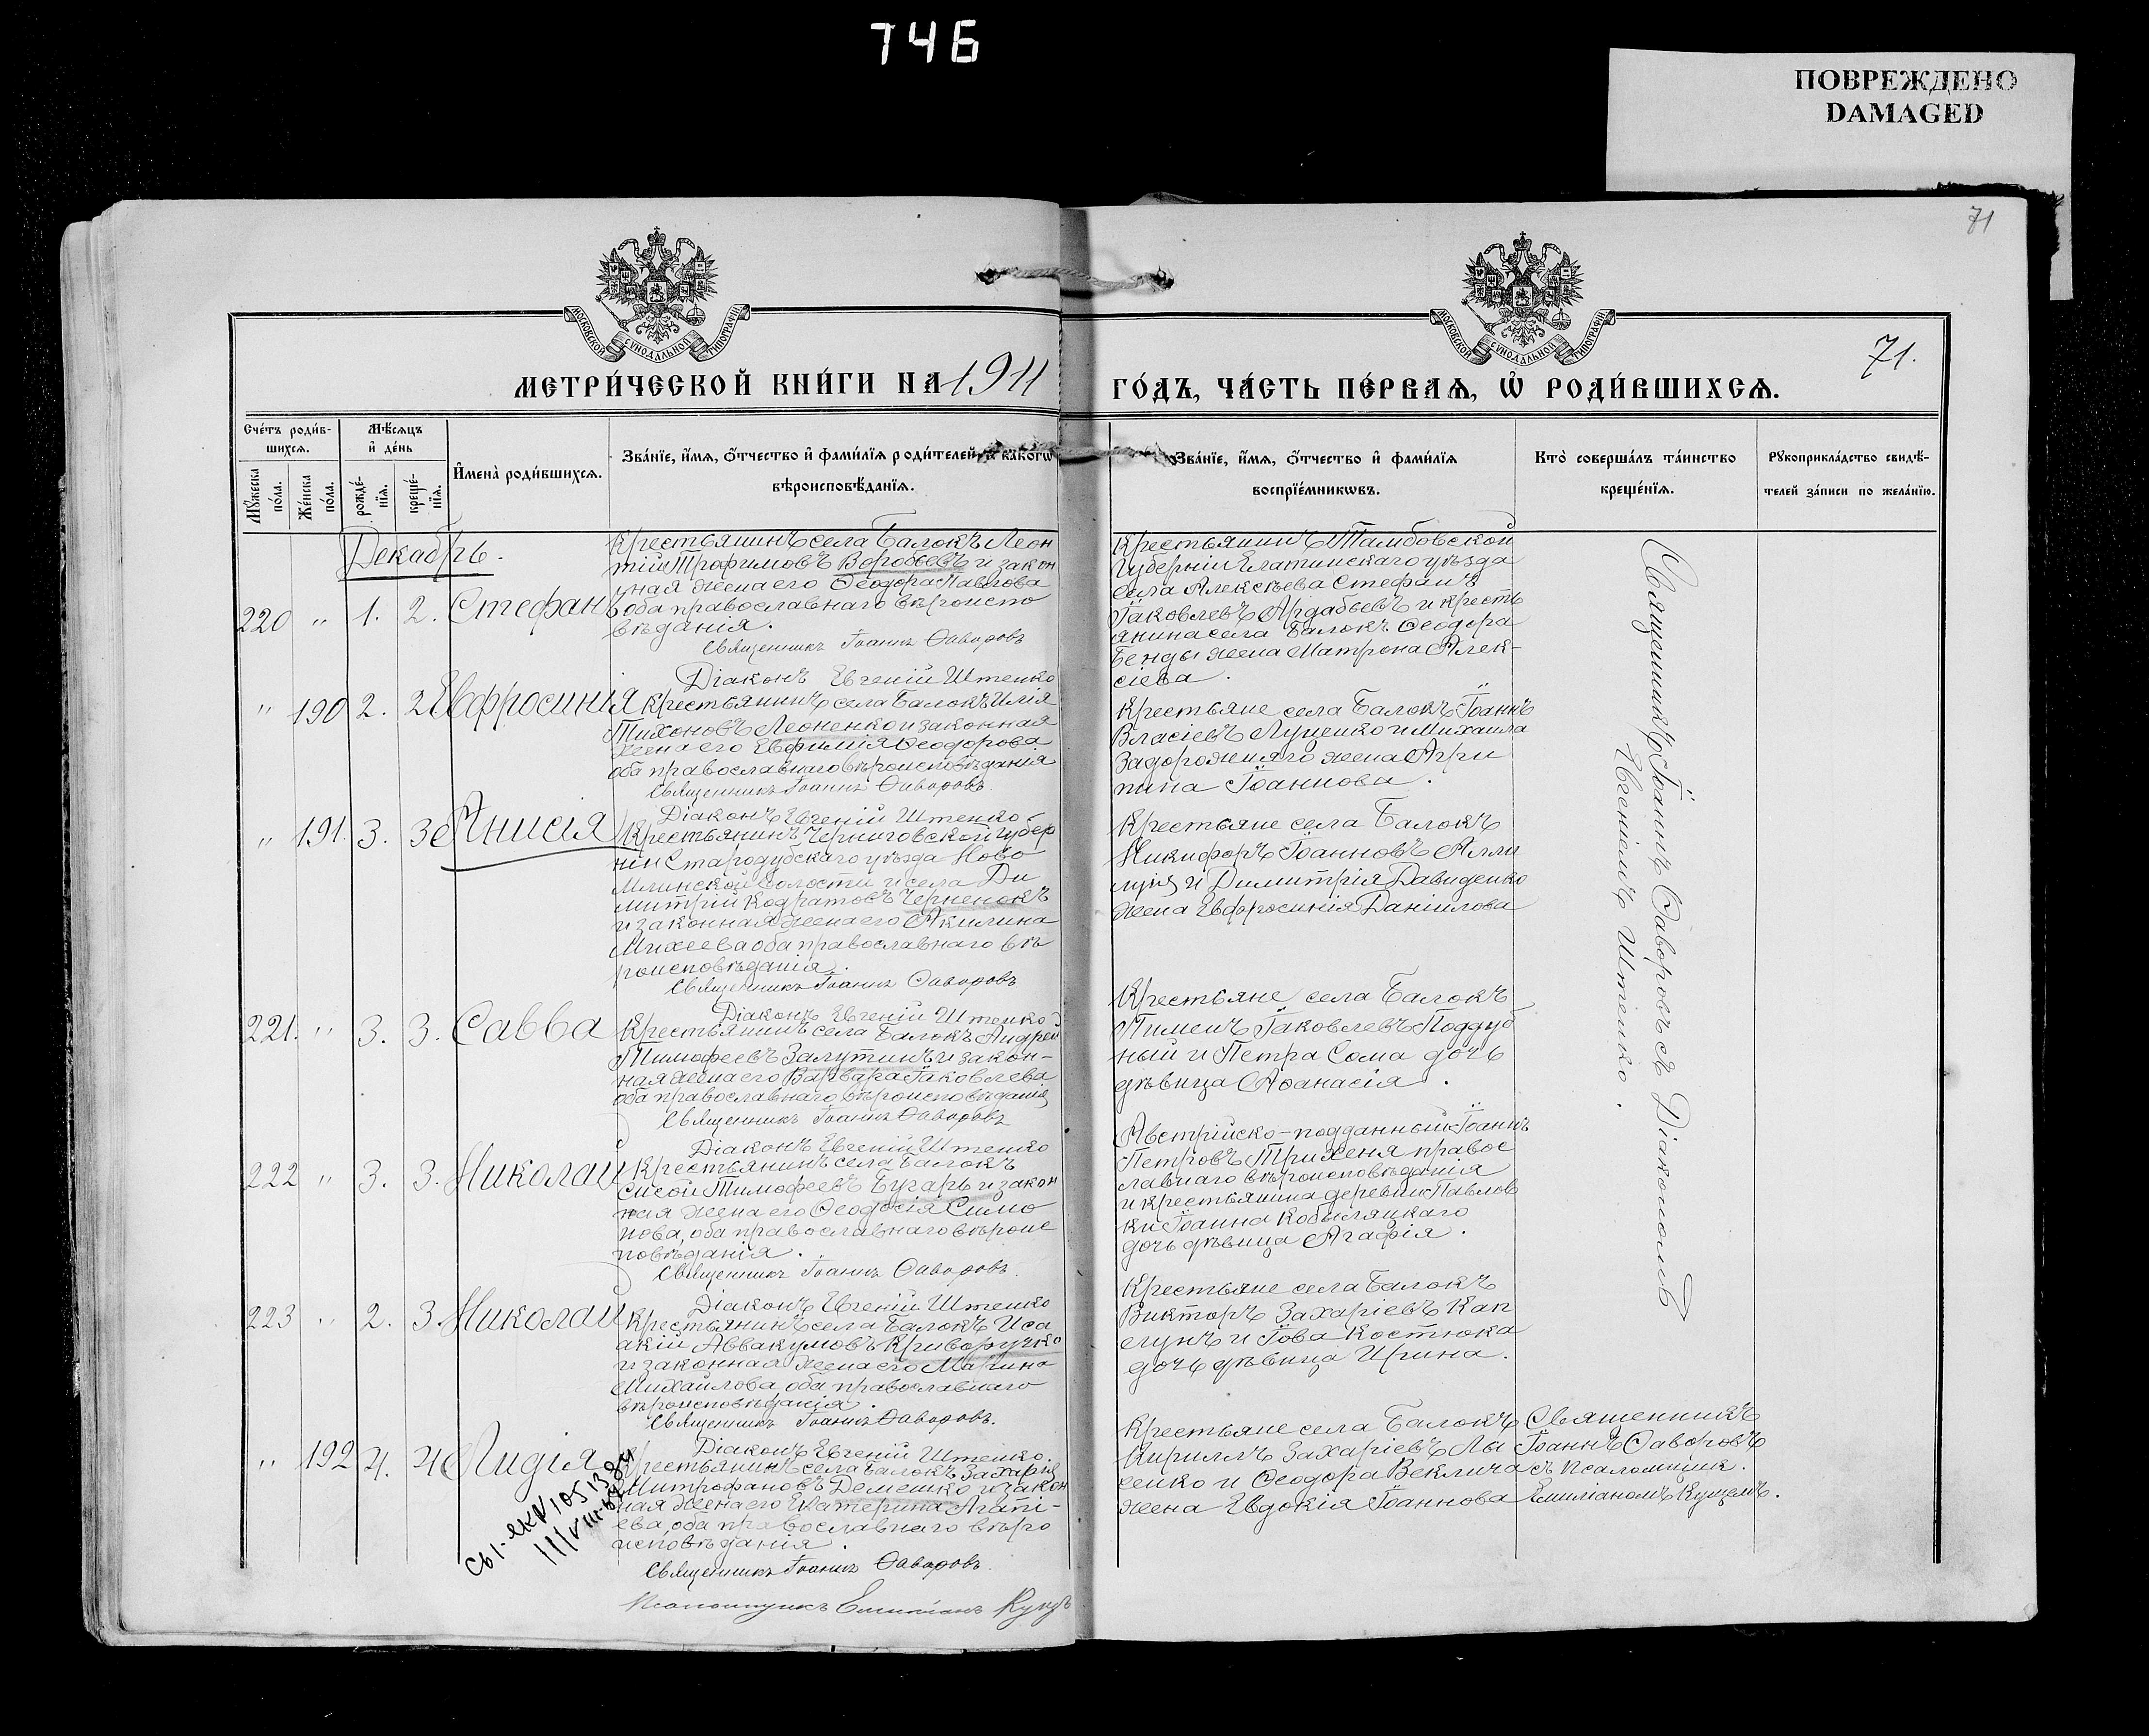 746
ПОВРЕЖДЕНО
DAMAGED
71
МОСКОВСКОЙ СУНОДАЛЬНОЙ ТИПОГРАФІИ
МОСКОВСКОЙ СУНОДАЛЬНОЙ ТИПОГРАФІИ
71.
МЕТРИ́ЧЕСКОЙ КНИ́ГИ НА 1911
ГО́ДЪ, ЧА́СТЬ ПЕ́РВАѦ, Ѡ҆ РОДИ́ВШИХСѦ.
Сче́тъ роди́в-
шихсѧ.
Мꙋ́жеска по́ла.
Же́нска по́ла.
Мѣ́сѧцъ
и҆ де́нь
рожде́-
нїѧ.
креще́-
нїѧ.
И҆мена̀ роди́вшихсѧ.
Зва́нїе, и҆́мѧ, ѻ҆́тчество и҆ фами́лїѧ роди́телей, и҆ како́гѡ
вѣроисповѣ́данїѧ.
Зва́нїе, и҆́мѧ, ѻ҆́тчество и҆ фами́лїѧ
воспрїе́мникѡвъ.
Кто̀ соверша́лъ та́инство
креще́нїѧ.
Рꙋкоприкла́дство свидѣ́-
телей за́писи по жела́нїю.
Декабрь.
220 " 1. 2. Стефанъ
Крестьянинъ села Балокъ Леон
тій Трофимовъ Воробьевъ и закон
ная жена его Ѳеодора Павлова
оба православнаго вѣроиспо
вѣданія.
Священникъ Іоаннъ Ѳаворовъ
Діаконъ Евгеній Штепко
Крестьянинъ Тамбовской
Губерніи Елатинскаго уѣзда
села Алексѣева Стефанъ
Іаковлевъ Ардабьевъ и кресть
янина села Балокъ Ѳеодора
Бенды жена Матрона Алек-
сіева.
" 190 2. 2 Евфросинія
Крестьянинъ села Балокъ Илія
Тихоновъ Леоненко и законная
жена его Евфимія Ѳеодорова
оба православнаго вѣроисповѣданія
Священникъ Іоаннъ Ѳаворовъ.
Діаконъ Евгеній Штепко
Крестьяне села Балокъ Іоаннъ
Власіевъ Луценко и Михаила
Задорожняго жена Агри
пина Іоаннова.
" 191. 3. 3 Анисія
Крестьянинъ Черниговской Губер
ніи Стародубскаго уѣзда Ново
Млинской волости и села Ди
митрій Кодратовъ Черненокъ
и законная жена его Акилина
Михеева оба православнаго вѣ
роисповѣданія.
Священникъ Іоаннъ Ѳаворовъ
Діаконъ Евгеній Штепко
Крестьяне села Балокъ
Никифоръ Іоанновъ
и Димитрія Давиденко
жена Евфросинія Даніилова
221. " 3. 3. Савва
Крестьянинъ села Балокъ Андрей
Тимофеевъ Залутинъ и закон-
ная жена его Варвара Іаковлева
оба православнаго вѣроисповѣданія
Священникъ Іоаннъ Ѳаворовъ
Діаконъ Евгеній Штепко
Крестьяне села Балокъ
Пименъ Іаковлевъ Поддуб
ный и Петра Сома дочь
дѣвица Аѳанасія.
222 " 3. 3. Николай
Крестьянинъ села Балокъ
Сисой Тимофеевъ Бугарь и закон
ная жена его Ѳеодосія Симо
нова, оба православнаго вѣроис
повѣданія.
Священникъ Іоаннъ Ѳаворовъ.
Діаконъ Евгеній Штепко
Австрійско-подданный Іоаннъ
Петровъ Трихеня правос
лавнаго вѣроисповѣданія
и крестьянина деревни Павлов
ки Іоанна Кобыляцкаго
дочь дѣвица Агафія.
223 " 2. 3. Николай
Крестьянинъ села Балокъ Иса
акій Аввакумовъ Криворучко
и законная жена его Марина
Михайлова, оба православнаго
вѣроисповѣданія.
Священникъ Іоаннъ Ѳаворовъ.
Діаконъ Евгеній Штепко.
Крестьяне села Балокъ
Викторъ Захаріевъ Кап
лунъ и Іова Костюка
дочь дѣвица Ирина.
" 192 4. 4 Лидія
Крестьянинъ села Балокъ Захарія
Митрофановъ Демешко и закон
ная жена его Екатерина Агапі-
ева, оба православнаго вѣро
исповѣданія.
Священникъ Іоаннъ Ѳаворовъ.
Псаломщикъ Емиліанъ Кущъ
Крестьяне села Балокъ
Кириллъ Захаріевъ Лы
сенко и Ѳеодора Веклича
жена Евдокія Іоаннова
Священникъ
Іоаннъ Ѳаворовъ
съ псаломщик.
Емиліаномъ Кущемъ.
Священникъ Іоаннъ Ѳаворовъ съ Діакономъ
Евгеніемъ Штепко.